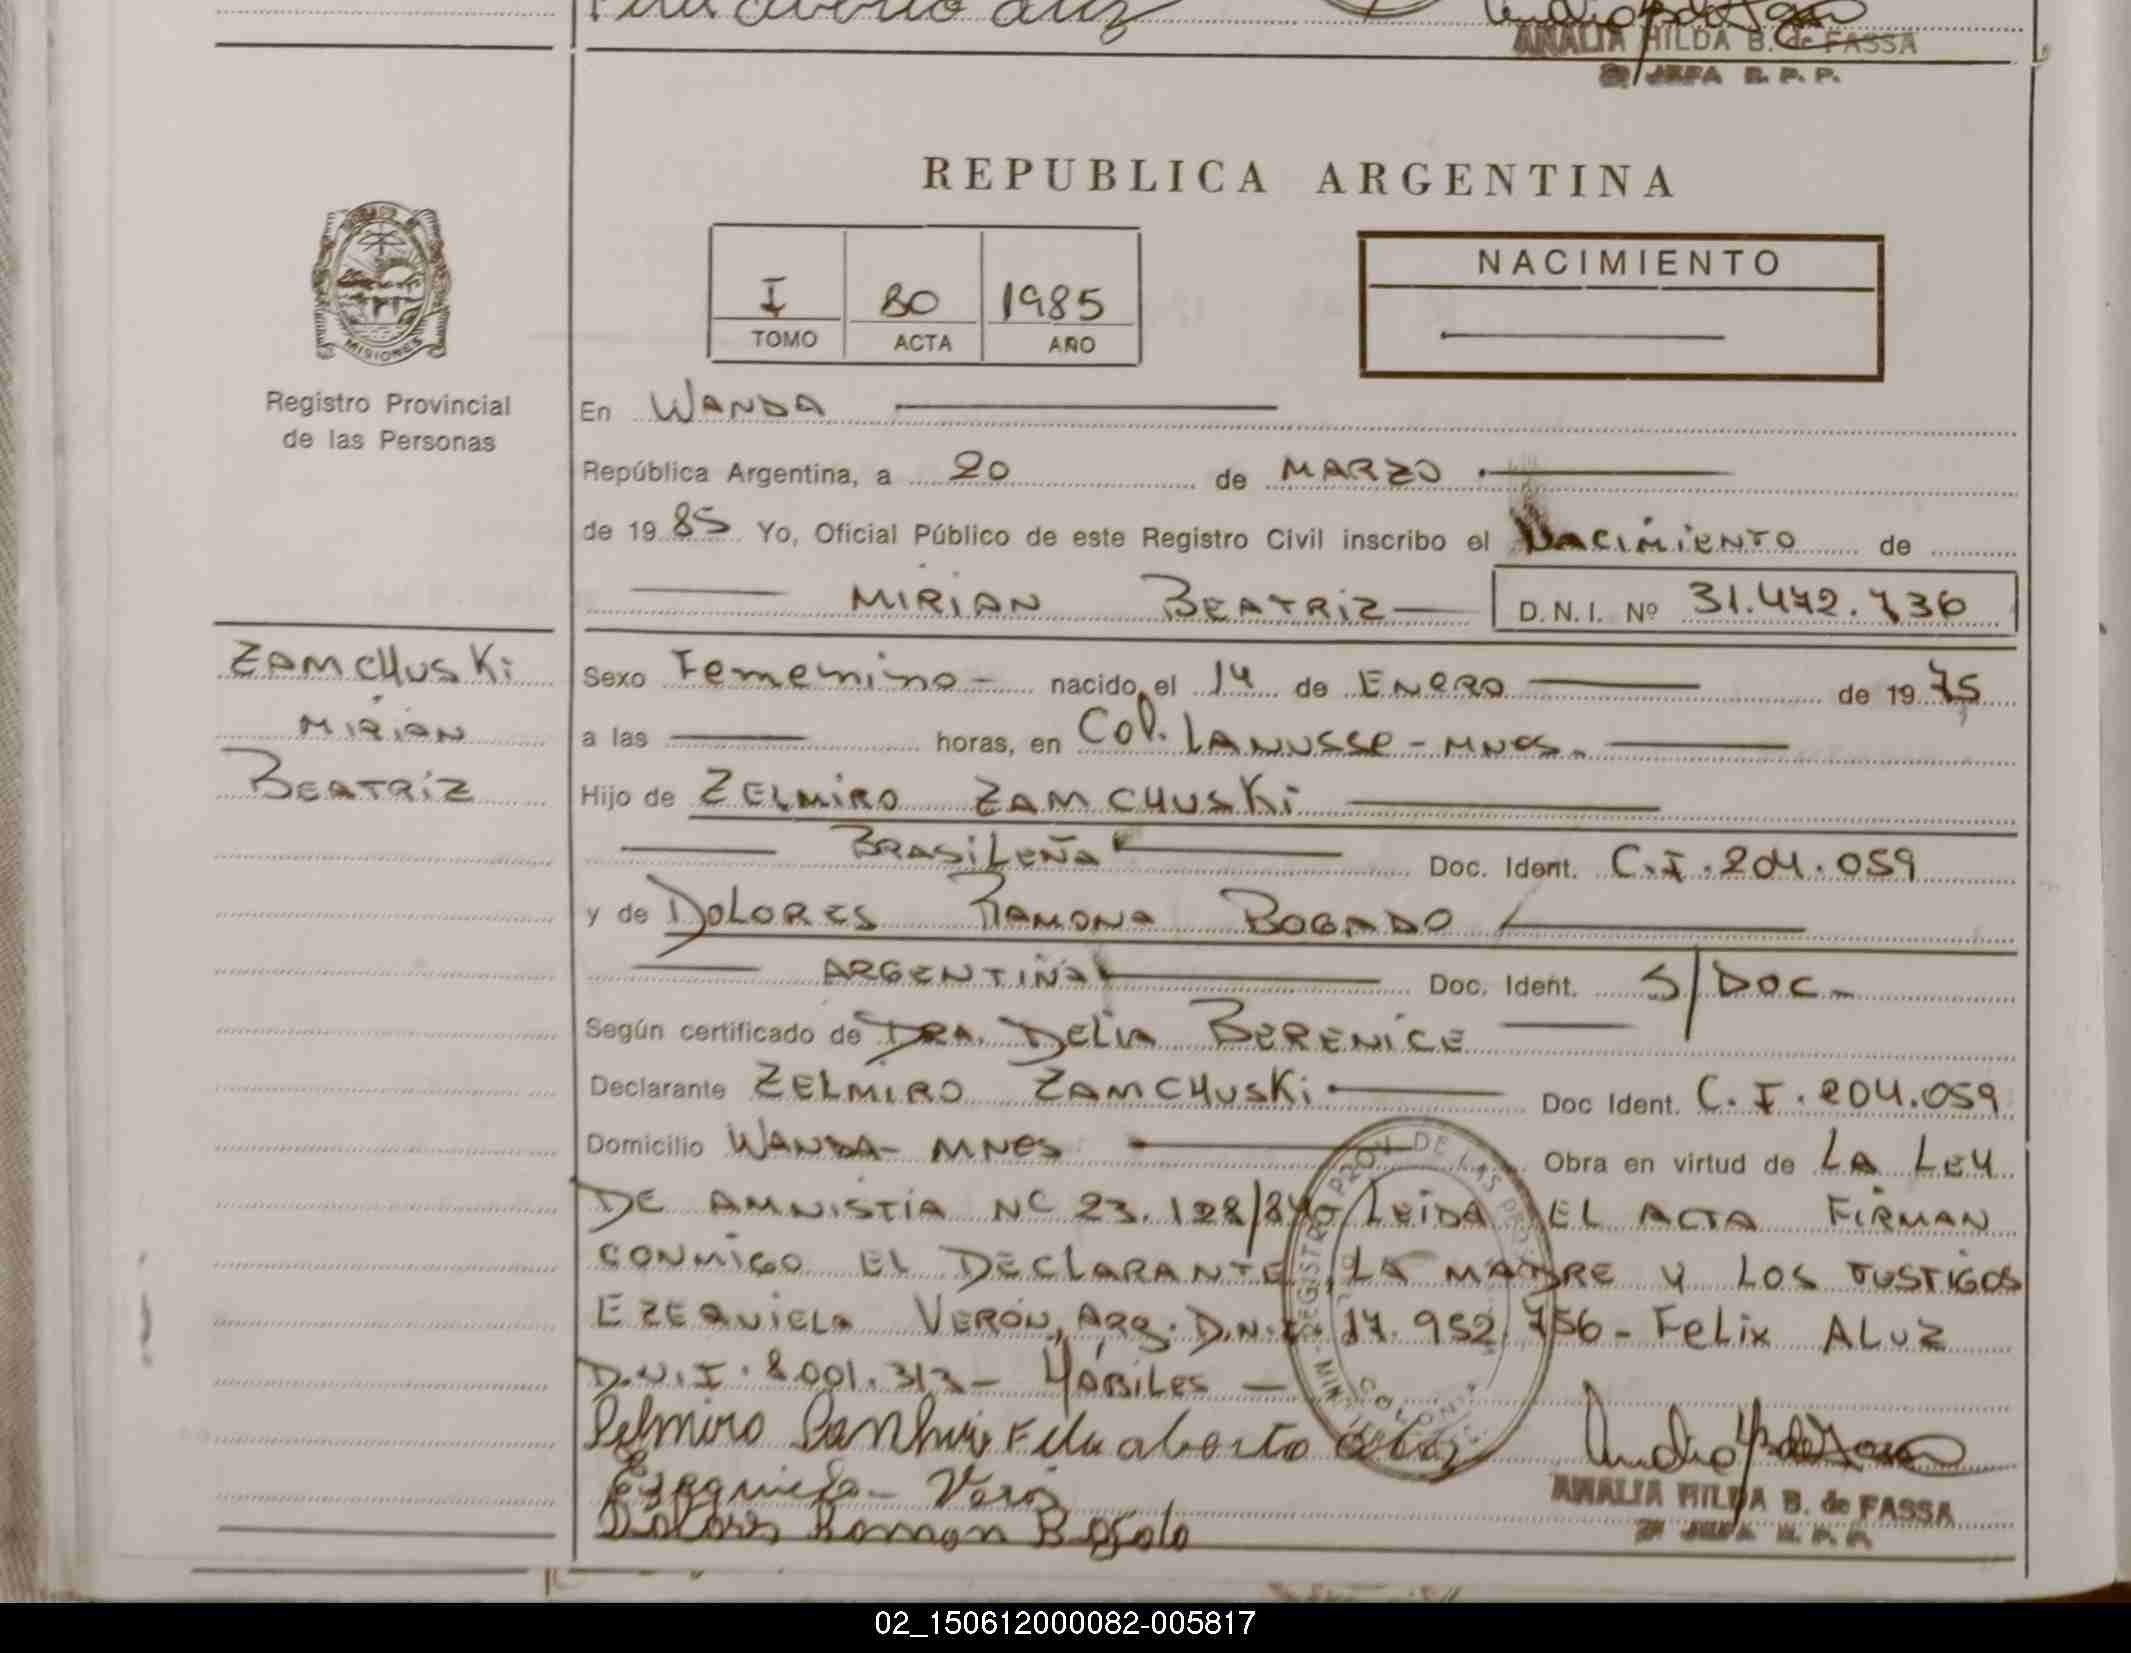 AMALIA HILDA B. de FASSA
JEFA R. P. P.
REPUBLICA ARGENTINA
I 80 1985
TOMO ACTA AÑO
NACIMIENTO
MISIONES
Registro Provincial
de las Personas
En WANDA
República Argentina, a 20 de MARZO
de 19 85 Yo, Oficial Público de este Registro Civil inscribo el NACIMIENTO de
MIRIAN BEATRIZ D.N.I. Nº 31.472.736
ZAMCHUSKI
MIRIAN
BEATRIZ
Sexo Femenino - nacido el 14 de ENERO de 19 75
a las horas, en Col. LANUSSE - MNES.
Hijo de ZELMIRO ZAMCHUSKI
BRASILEÑA Doc. Ident. C.I. 204.059
y de DOLORES RAMONA BOGADO
ARGENTINA Doc. Ident. S/DOC -
Según certificado de DRA. DELIA BERENICE
Declarante ZELMIRO ZAMCHUSKI Doc Ident. C.I. 204.059
Domicilio WANDA - MNES Obra en virtud de LA LEY
DE AMNISTIA Nº 23.128/84 LEIDA EL ACTA FIRMAN
CONMIGO EL DECLARANTE, LA MADRE Y LOS TUSTIGOS
EZEQUIELA VERON, ARG. D.N.I. 17.952.756 - FELIX ALUZ
D.N.I. 8.001.313 - HÁBILES -
Ezequiela - Veron
AMALIA HILDA B. de FASSA
02_150612000082-005817